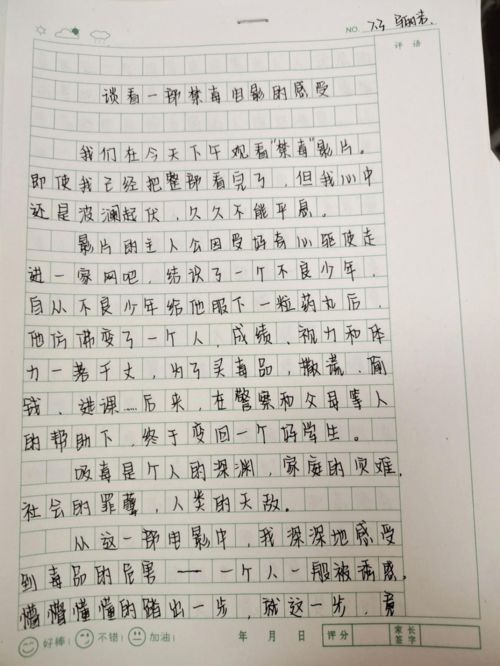 NO. 73
评语
谈看一部禁毒电影的感受
我们在今天下午观看"禁毒"影片。
即使我已经把整部看完了，但我心中
还是波澜起伏，久久不能平息。
影片的主人公因受好奇心驱使走
进一家网吧，结识了一个不良少年，
自从不良少年给他服下一粒药丸后，
他仿佛变了一个人，成绩、视力和体
力一落千丈，为了买毒品，撒谎、偷
钱、逃课……后来，在警察和父母等人
的帮助下，终于变回一个好学生。
吸毒是个人的深渊，家庭的灾难，
社会的罪孽，人类的天敌。
从这一部电影中，我深深地感受
到毒品的危害——一个人一般被诱惑，
懵懵懂懂的踏出一步，就这一步，竟
好棒！ 不错！ 加油！ 年 月 日 评分 家长签字